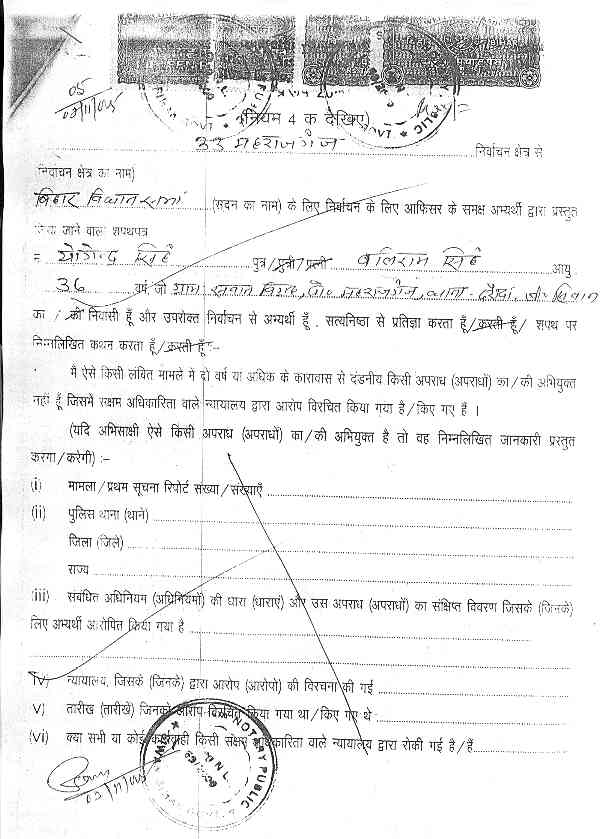 05
03/11/05
(नियम 4 क देखिए)
33 महराजगंज निर्वाचन क्षेत्र से
निर्वाचन क्षेत्र का नाम)
बिहार विधान सभा (सदन का नाम) के लिए निर्वाचन के लिए आफिसर के समक्ष अभ्यर्थी द्वारा प्रस्तुत
किया जाने वाला शपथपत्र
योगेन्द्र सिंह पुत्र/पुत्री/पत्नी बलिराम सिंह आयु
36 वर्ष, जो ग्राम
का / की निवासी हूँ और उपरोक्त निर्वाचन से अभ्यर्थी हूँ , सत्यनिष्ठा से प्रतिज्ञा करता हूँ/करती हूँ/ शपथ पर
निम्नलिखित कथन करता हूँ/करती हूँ:-
मै ऐसे किसी लंबित मामले में दो वर्ष या अधिक के कारावास से दंडनीय किसी अपराध (अपराधों) का/की अभियुक्त
नहीं हूँ जिसमें सक्षम अधिकारिता वाले न्यायालय द्वारा आरोप विरचित किया गया है/किए गए हैं ।
(यदि अभिसाक्षी ऐसे किसी अपराध (अपराधों) का/की अभियुक्त है तो वह निम्नलिखित जानकारी प्रस्तुत
करगा/करेगी) :-
(i) मामला/प्रथम सूचना रिपोर्ट संख्या/संख्याएँ
(ii) पुलिस थाना (थाने)
जिला (जिले)
राज्य
(iii) संबंधित अधिनियम (अधिनियमों) की धारा (धाराएं) और उस अपराध (अपराधों) का संक्षिप्त विवरण जिसके (जिनके)
लिए अभ्यर्थी आरोपित किया गया है
iv) न्यायालय, जिसके (जिनके) द्वारा आरोप (आरोपो) की विरचना की गई
v) तारीख (तारीखें) जिनको आरोप विरचित किया गया था/किए गए थे
(vi) क्या सभी या कोई कार्यवाही किसी सक्षम अधिकारिता वाले न्यायालय द्वारा रोकी गई है/हैं
NOTARY PUBLIC
03/11/05